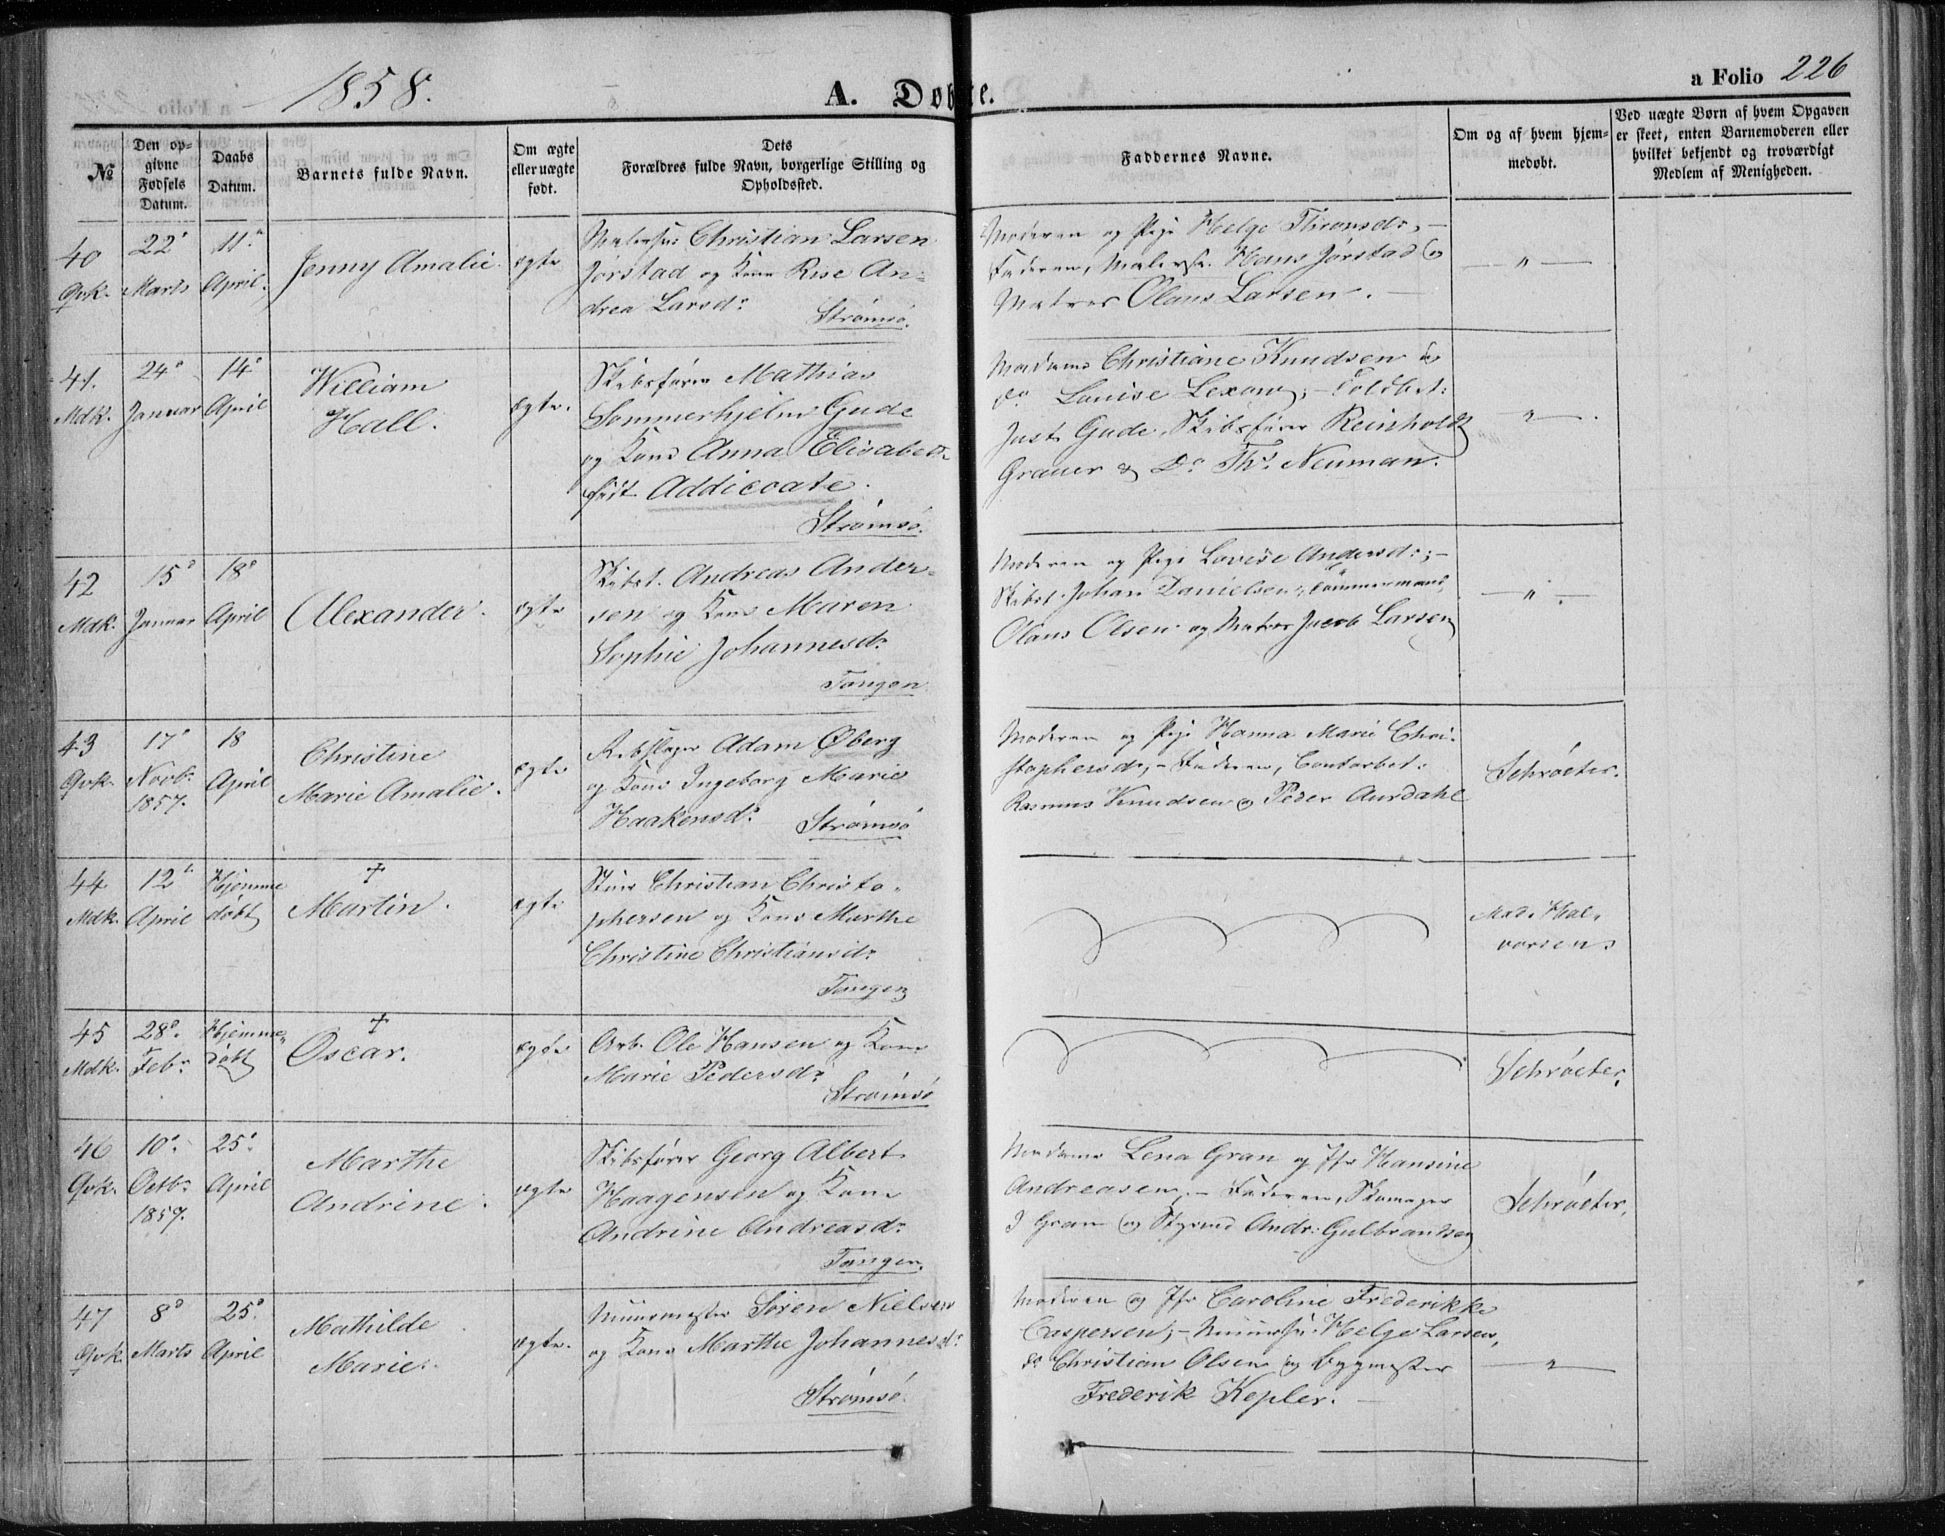 1858.
A. Døbte.
a Folio 226
№
Den opgivne Fødsels Datum.
Daabs Datum.
Barnets fulde Navn.
Om ægte eller uægte født.
Dets Forældres fulde Navn, borgerlige Stilling og Opholdssted.
Faddernes Navne.
Om og af hvem hjemmedøbt.
Ved uægte Børn af hvem Opgaven er skeet, enten Barnemoderen eller hvilket bekjendt og troværdigt Medlem af Menigheden.
40 Qvk.
22 Marts
11 April.
Jenny Amalie.
ægte
Malersv: Christian Larsen
Jørstad og Kone Rise An-
drea Larsd:
Strømsø.
Moderen og Pige Helge Thronsd:, -
Faderen, Malersv. Hans Jørstad og
Matros Olaus Larsen. -
— " —
41. Mdk.
24 Januar
14 April
William
Hall.
ægte.
Skibsfører Mathias
Sommerhjelm Gude
og Kone Anna Elisabeth
født Addicoate.
Strømsø.
Madame Christiane Knudsen &
do Louise Lexow; - Toldbet:
Just Gude, Skibsfører Reinholdt
Grauer & Do Ths. Neuman.
— " —.
42 Mdk.
15 Januar
18 April
Alexander.
ægte
Skibst. Andreas Ander-
sen og Kone Maren
Sophie Johannesd:
Tangen
Moderen og Pige Lovise Andersd:; -
Skibst. Johan Danielsen, Tømmermand
Olaus Olsen og Matros Jacob Larsen
— " —
43 Qvk.
17 Novb: 1857.
18 April
Christine
Marie Amalie.
ægte
Rebslager Adam Øberg
og Kone Ingeborg Marie
Haakensd:
Strømsø
Moderen og Pige Hanna Marie Chri-
stophersd:, - Faderen, Contorbet:
Rasmus Knudsen & Peder Aurdahl
Schrøeter.
44 Mdk.
12 April
Hjemme
døbt
+
Martin.
ægte
Christian Christo-
phersen og Kone Marthe
Christine Christiansd:
Tangen
Mad. Hal-
vorsen
45 Mdk.
28 Feb:
Hjemme-
døbt
+
Oscar.
ægte
Arb. Ole Hansen og Kone
Marie Pedersd:
Strømsø
Schrøeter.
46 Qvk.
10 Octb: 1857.
25 April
Marthe
Andrine.
ægte
Skibsfører Georg Albert
Haagensen og Kone
Andrine Andreasd:
Tangen.
Madame Lena Gran og Jfr Hansine
Andreasen, - Faderen, Skomager
J Gran og Styrmd Andr. Gulbrantsen
Schrøeter.
47 Qvk.
8 Marts
25 April
Mathilde
Marie.
ægte.
Muurmester Søren Nielsen
og Kone Marthe Johannesd:
Strømsø.
Moderen og Jfr Caroline Frederikke
Caspersen; - Muursv: Helge Larsen,
do Christian Olsen og Bygmester
Frederik Kepler. -
— " —